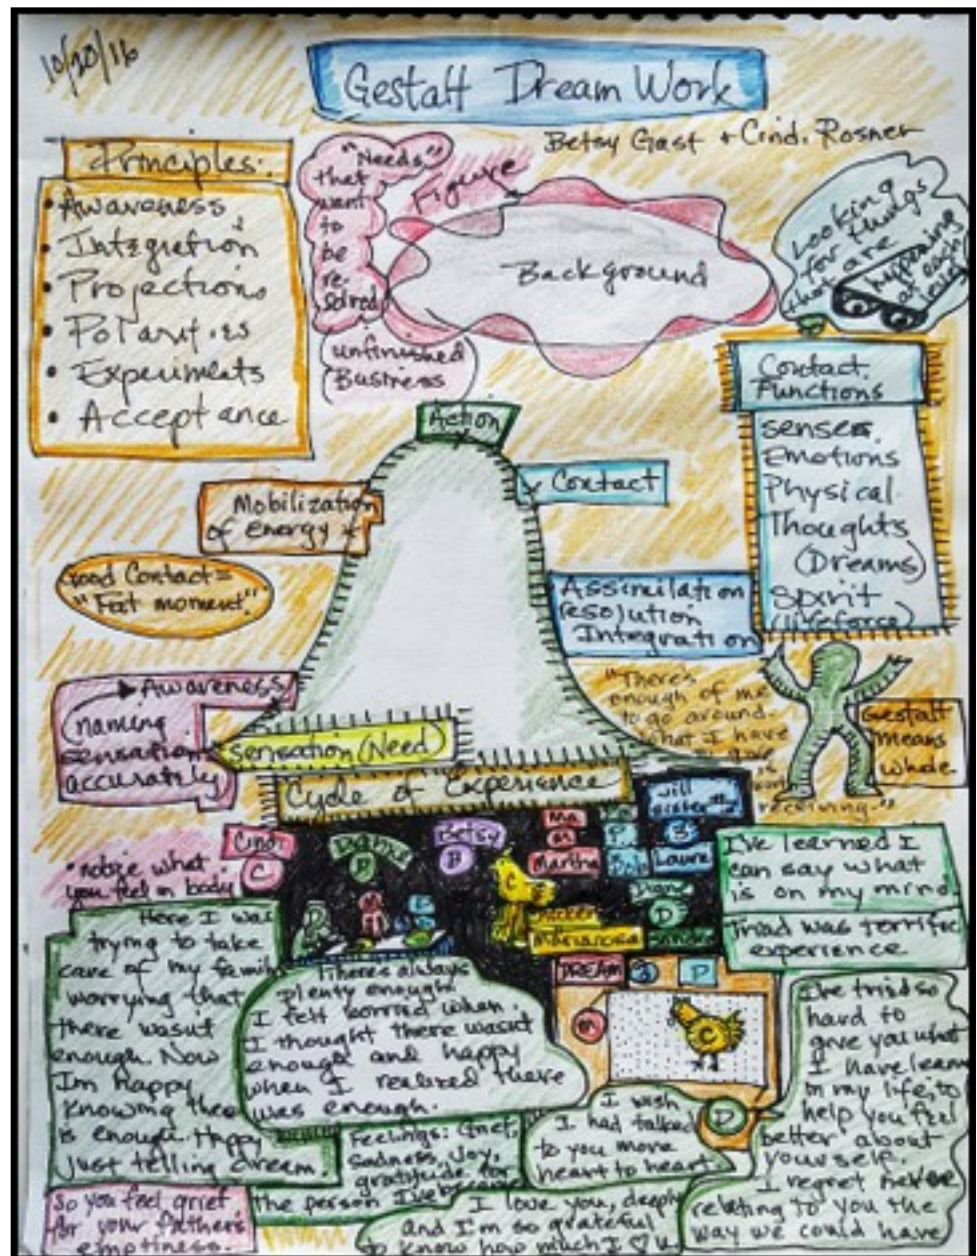 10/20/16
Gestalt Dream Work
Betsy Gast + Cindi Rosner
Principles:
• Awareness
• Integration
• Projections
• Polarities
• Experiments
• Acceptance
"Needs"
that
want
to
be
re-
solved
Figure
Background
unfinished
Business
Looking
for things
that are
happening
at each
Contact
Functions
senses
Emotions
Physical
Thoughts
(Dreams)
Spirit
(lifeforce)
Action
Mobilization
of energy
Contact
Good Contact =
"Fat moment"
Assimilation
resolution
Integration
Awareness
(naming
sensations
accurately)
Sensation (Need)
Cycle of Experience
"There's
enough of me
to go around.
What I have
is
receiving."
Gestalt
means
whole
• notice what
you feel in body
Cindi
C
D
Betsy
B
Ma
M
Martha
P
Bob
sister
3
Laura
Diane
D
Sandra
Chicken
C
Mariarosa
D
I've learned I
can say what
is on my mind.
Triad was terrific
experience
Here I was
trying to take
care of my family
worrying that
there wasnt
enough. Now
Im happy
knowing there
is enough. Happy
just telling dream.
Theres always
plenty enough.
I felt worried when
I thought there wasnt
enough and happy
when I realized there
was enough.
DREAM
3
P
M
C
D
I've tried so
hard to
give you what
I have learn
in my life, to
help you feel
better about
yourself.
I regret never
relating to you the
way we could have
I wish
I had talked
to you more
heart to heart
Feelings: Grief,
Sadness, Joy,
gratitude for
the person I've become
So you feel grief
for your father's
emptiness.
I love you, deeply
and I'm so grateful
to know how much I ♡ u.